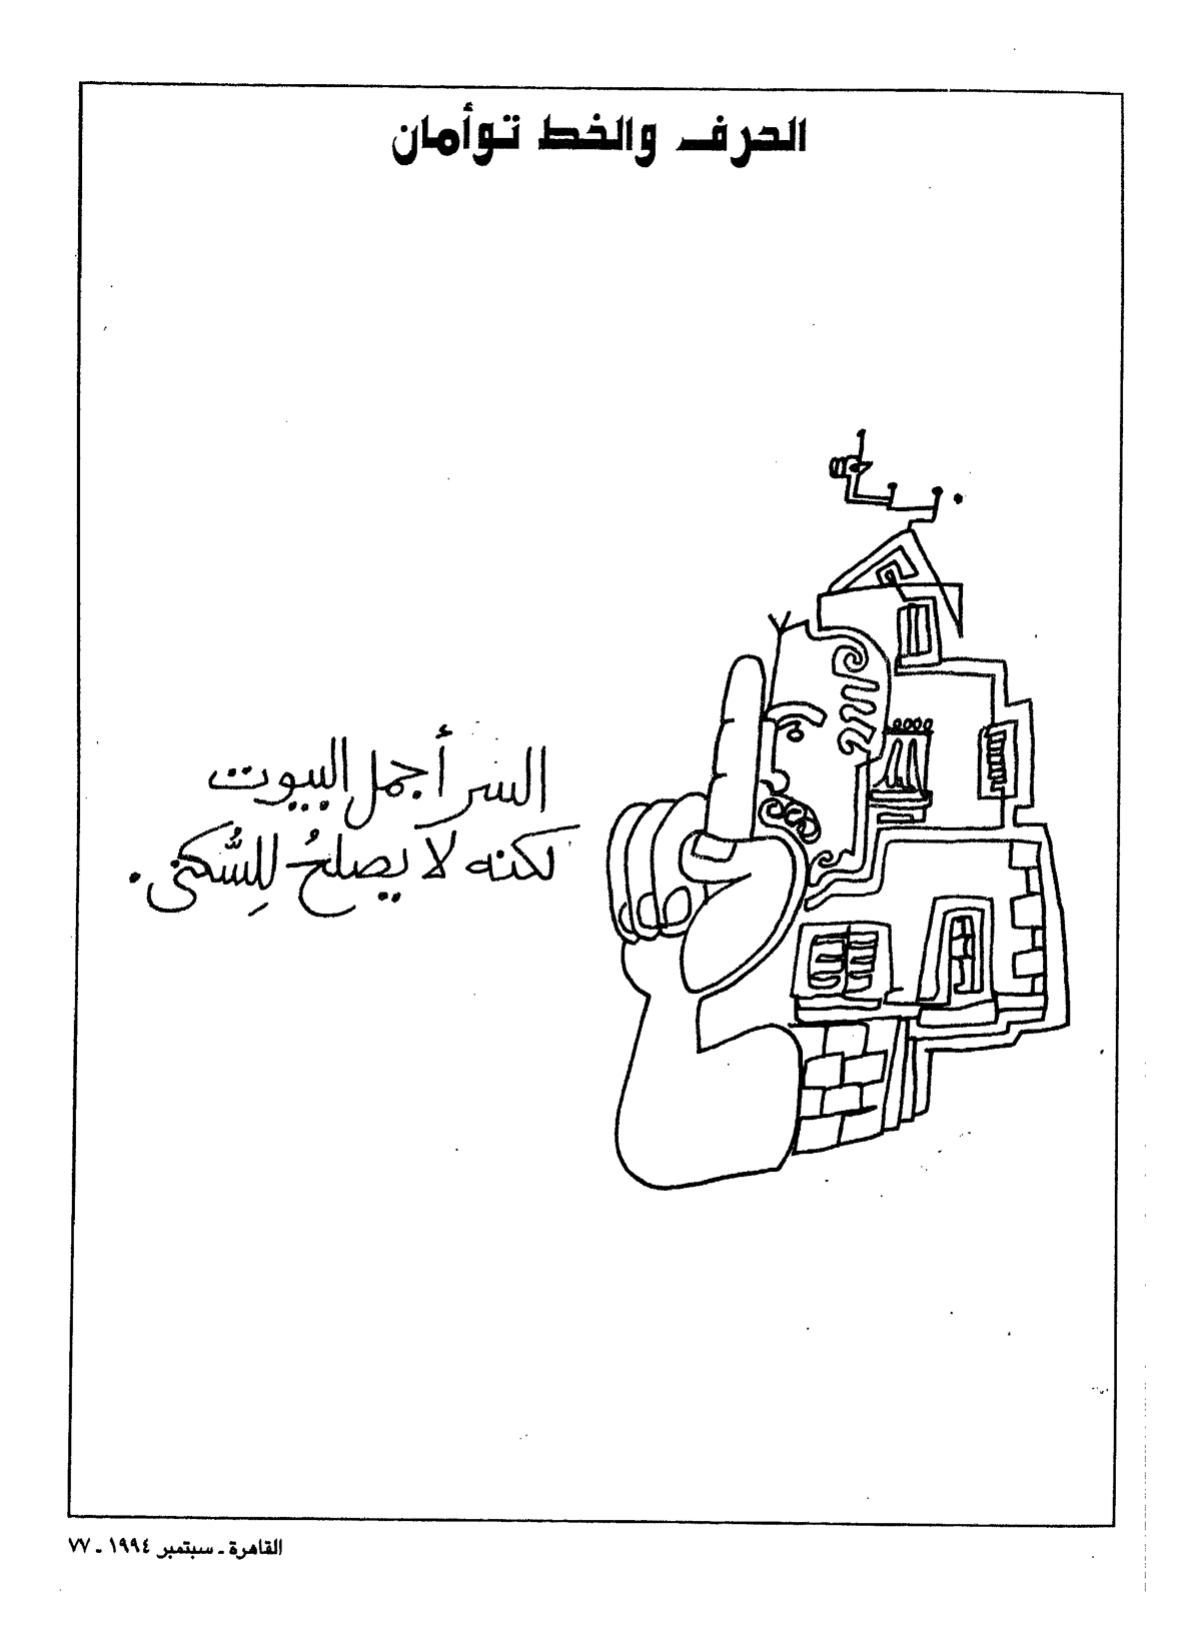 الحرف والخط توأمان
السر أجمل البيوت
لكنه لا يصلحُ للِسُّكنى .
القاهرة ـ سبتمبر ١٩٩٤ ـ ٧٧